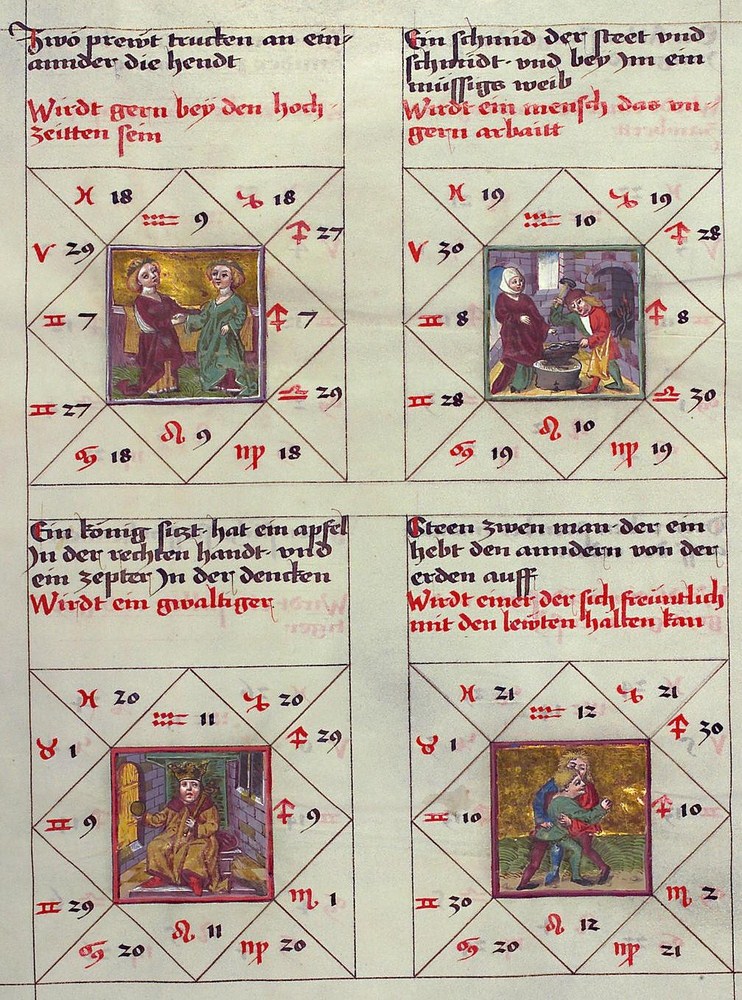 Zwo prewt trucken an ein-
annder die hendt
Wirdt gern bey den hoch
zeitten sein
♓ 18
♒ 9
♑ 18
♐ 27
♈ 29
♊ 7
♐ 7
♊ 27
♎ 29
♋ 18
♌ 9
♍ 18
Ein schmid der steet vnd
schmidt vnd bey Jm ein
müssigs weib
Wirdt ein mensch das vn
gern arbaitt
♓ 19
♒ 10
♑ 19
♐ 28
♈ 30
♊ 8
♐ 8
♊ 28
♎ 30
♋ 19
♌ 10
♍ 19
Ein könig sizt hat ein apfel
Jn der rechten handt vnd
ein zepter Jn der dencken
Wirdt ein gwaltiger
♓ 20
♒ 11
♑ 20
♐ 29
♉ 1
♊ 9
♐ 9
♊ 29
♏ 1
♋ 20
♌ 11
♍ 20
Steen zwen man der ein
hebt den anndern von der
erden auff
Wirdt einer der sich freüntlich
mit den lewten halten kan
♓ 21
♒ 12
♑ 21
♐ 30
♉ 1
♊ 10
♐ 10
♊ 30
♏ 2
♋ 20
♌ 12
♍ 21